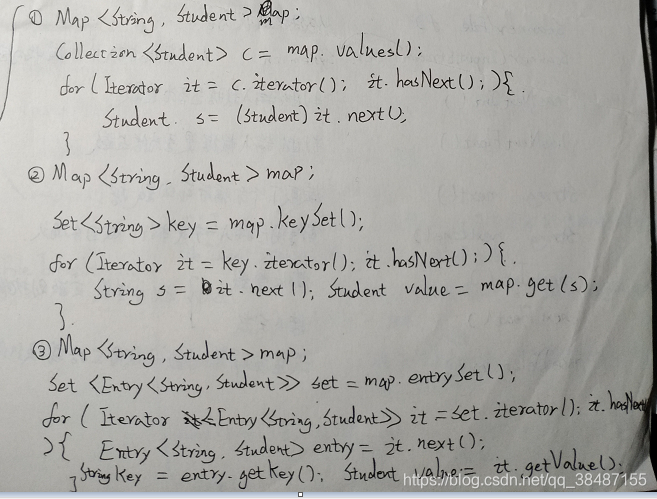 ① Map <String, Student> map;
Collection <Student> c = map.values();
for ( Iterator it = c.iterator(); it.hasNext(); ){
Student s = (Student) it.next();
}
② Map <String, Student> map;
Set<String> key = map.keySet();
for (Iterator it = key.iterator(); it.hasNext(); ){
String s = it.next(); Student value = map.get(s);
}.
③ Map <String, Student> map;
Set <Entry<String, Student>> set = map.entrySet();
for ( Iterator <Entry<String, Student>> it = set.iterator(); it.hasNext
){ Entry <String, Student> entry = it.next();
String key = entry.getKey(); Student value = it.getValue();
}
https://blog.csdn.net/qq_38487155